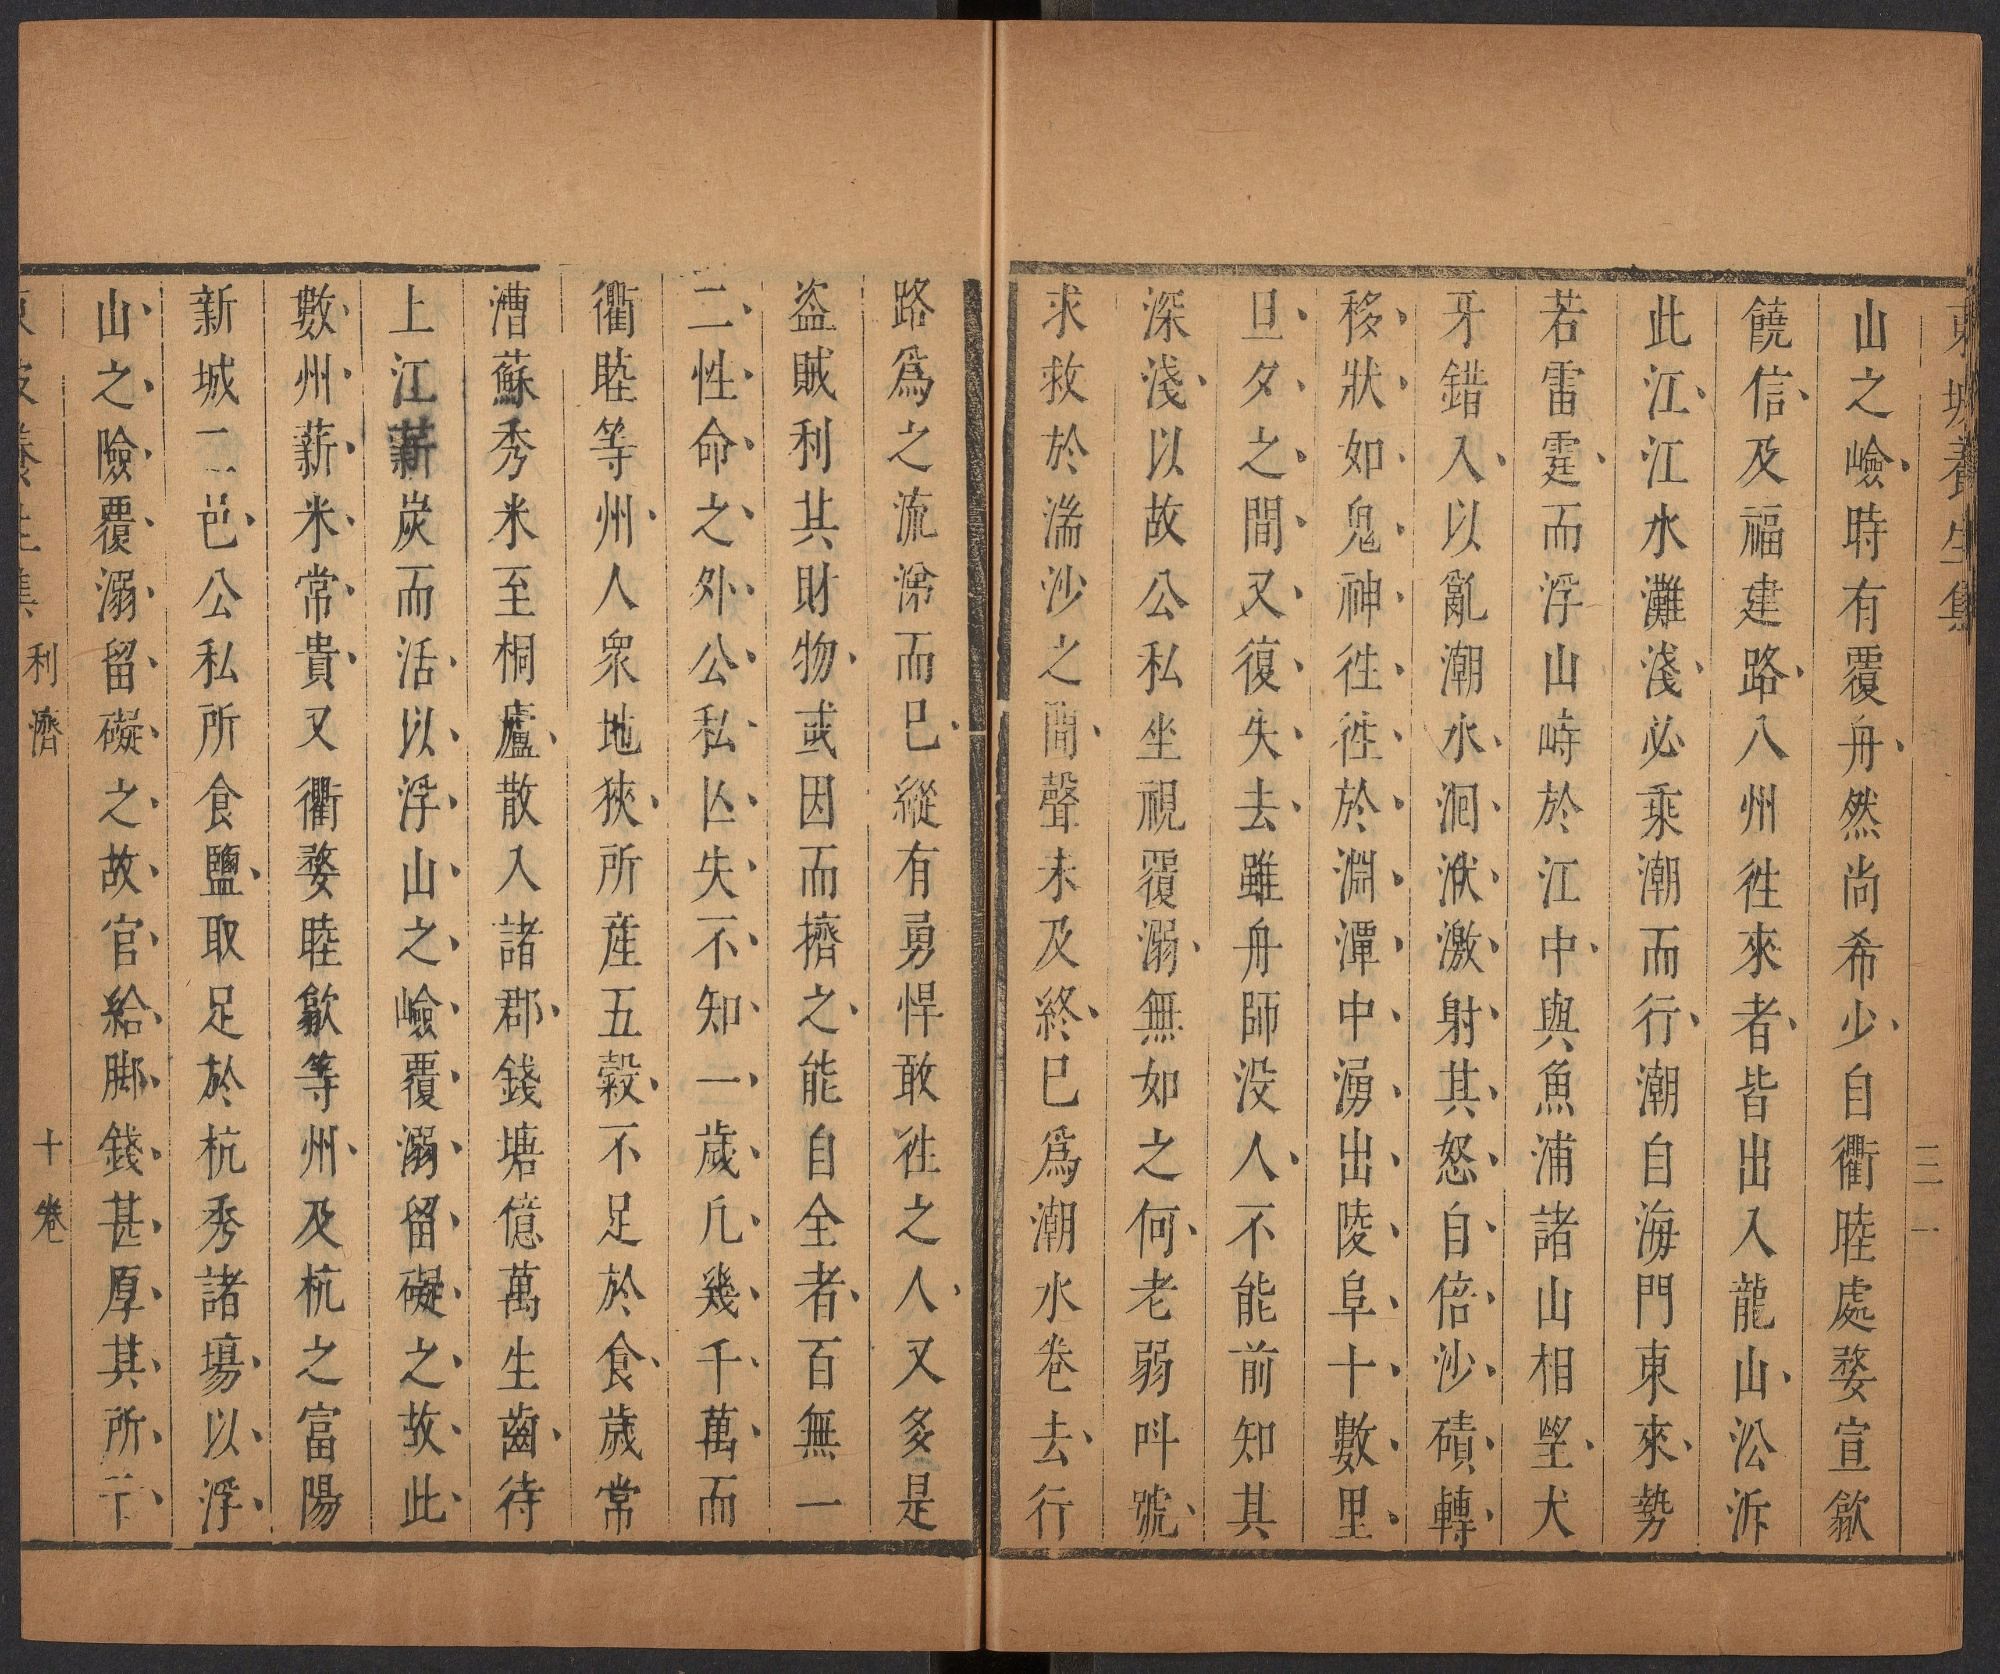 東坡養生集
三一
山之嶮時有覆舟然尚希少自衢睦處婺宣歙
饒信及福建路八州徃來者皆出入龍山㳂泝
此江江水灘淺必乘潮而行潮自海門東來勢
若雷霆而浮山峙於江中與魚浦諸山相望犬
牙錯入以亂潮水洄洑激射其怒自倍沙磧轉
移狀如鬼神徃徃於淵潭中湧出陵阜十數里
旦夕之間又復失去雖舟師没人不能前知其
深淺以故公私坐視覆溺無如之何老弱呌號
求救於湍沙之間聲未及終已爲潮水卷去行
路爲之流涕而已縱有勇悍敢徃之人又多是
盗賊利其財物或因而擠之能自全者百無一
二性命之外公私亾失不知一歲凢幾千萬而
衢睦等州人衆地狹所産五穀不足於食歲常
漕蘇秀米至桐廬散入諸郡錢塘億萬生齒待
上江薪炭而活以浮山之嶮覆溺留礙之故此
數州薪米常貴又衢婺睦歙等州及杭之富陽
新城二邑公私所食鹽取足於杭秀諸場以浮
山之險覆溺留礙之故官給脚錢甚厚其所
東坡養生集 利濟 十卷